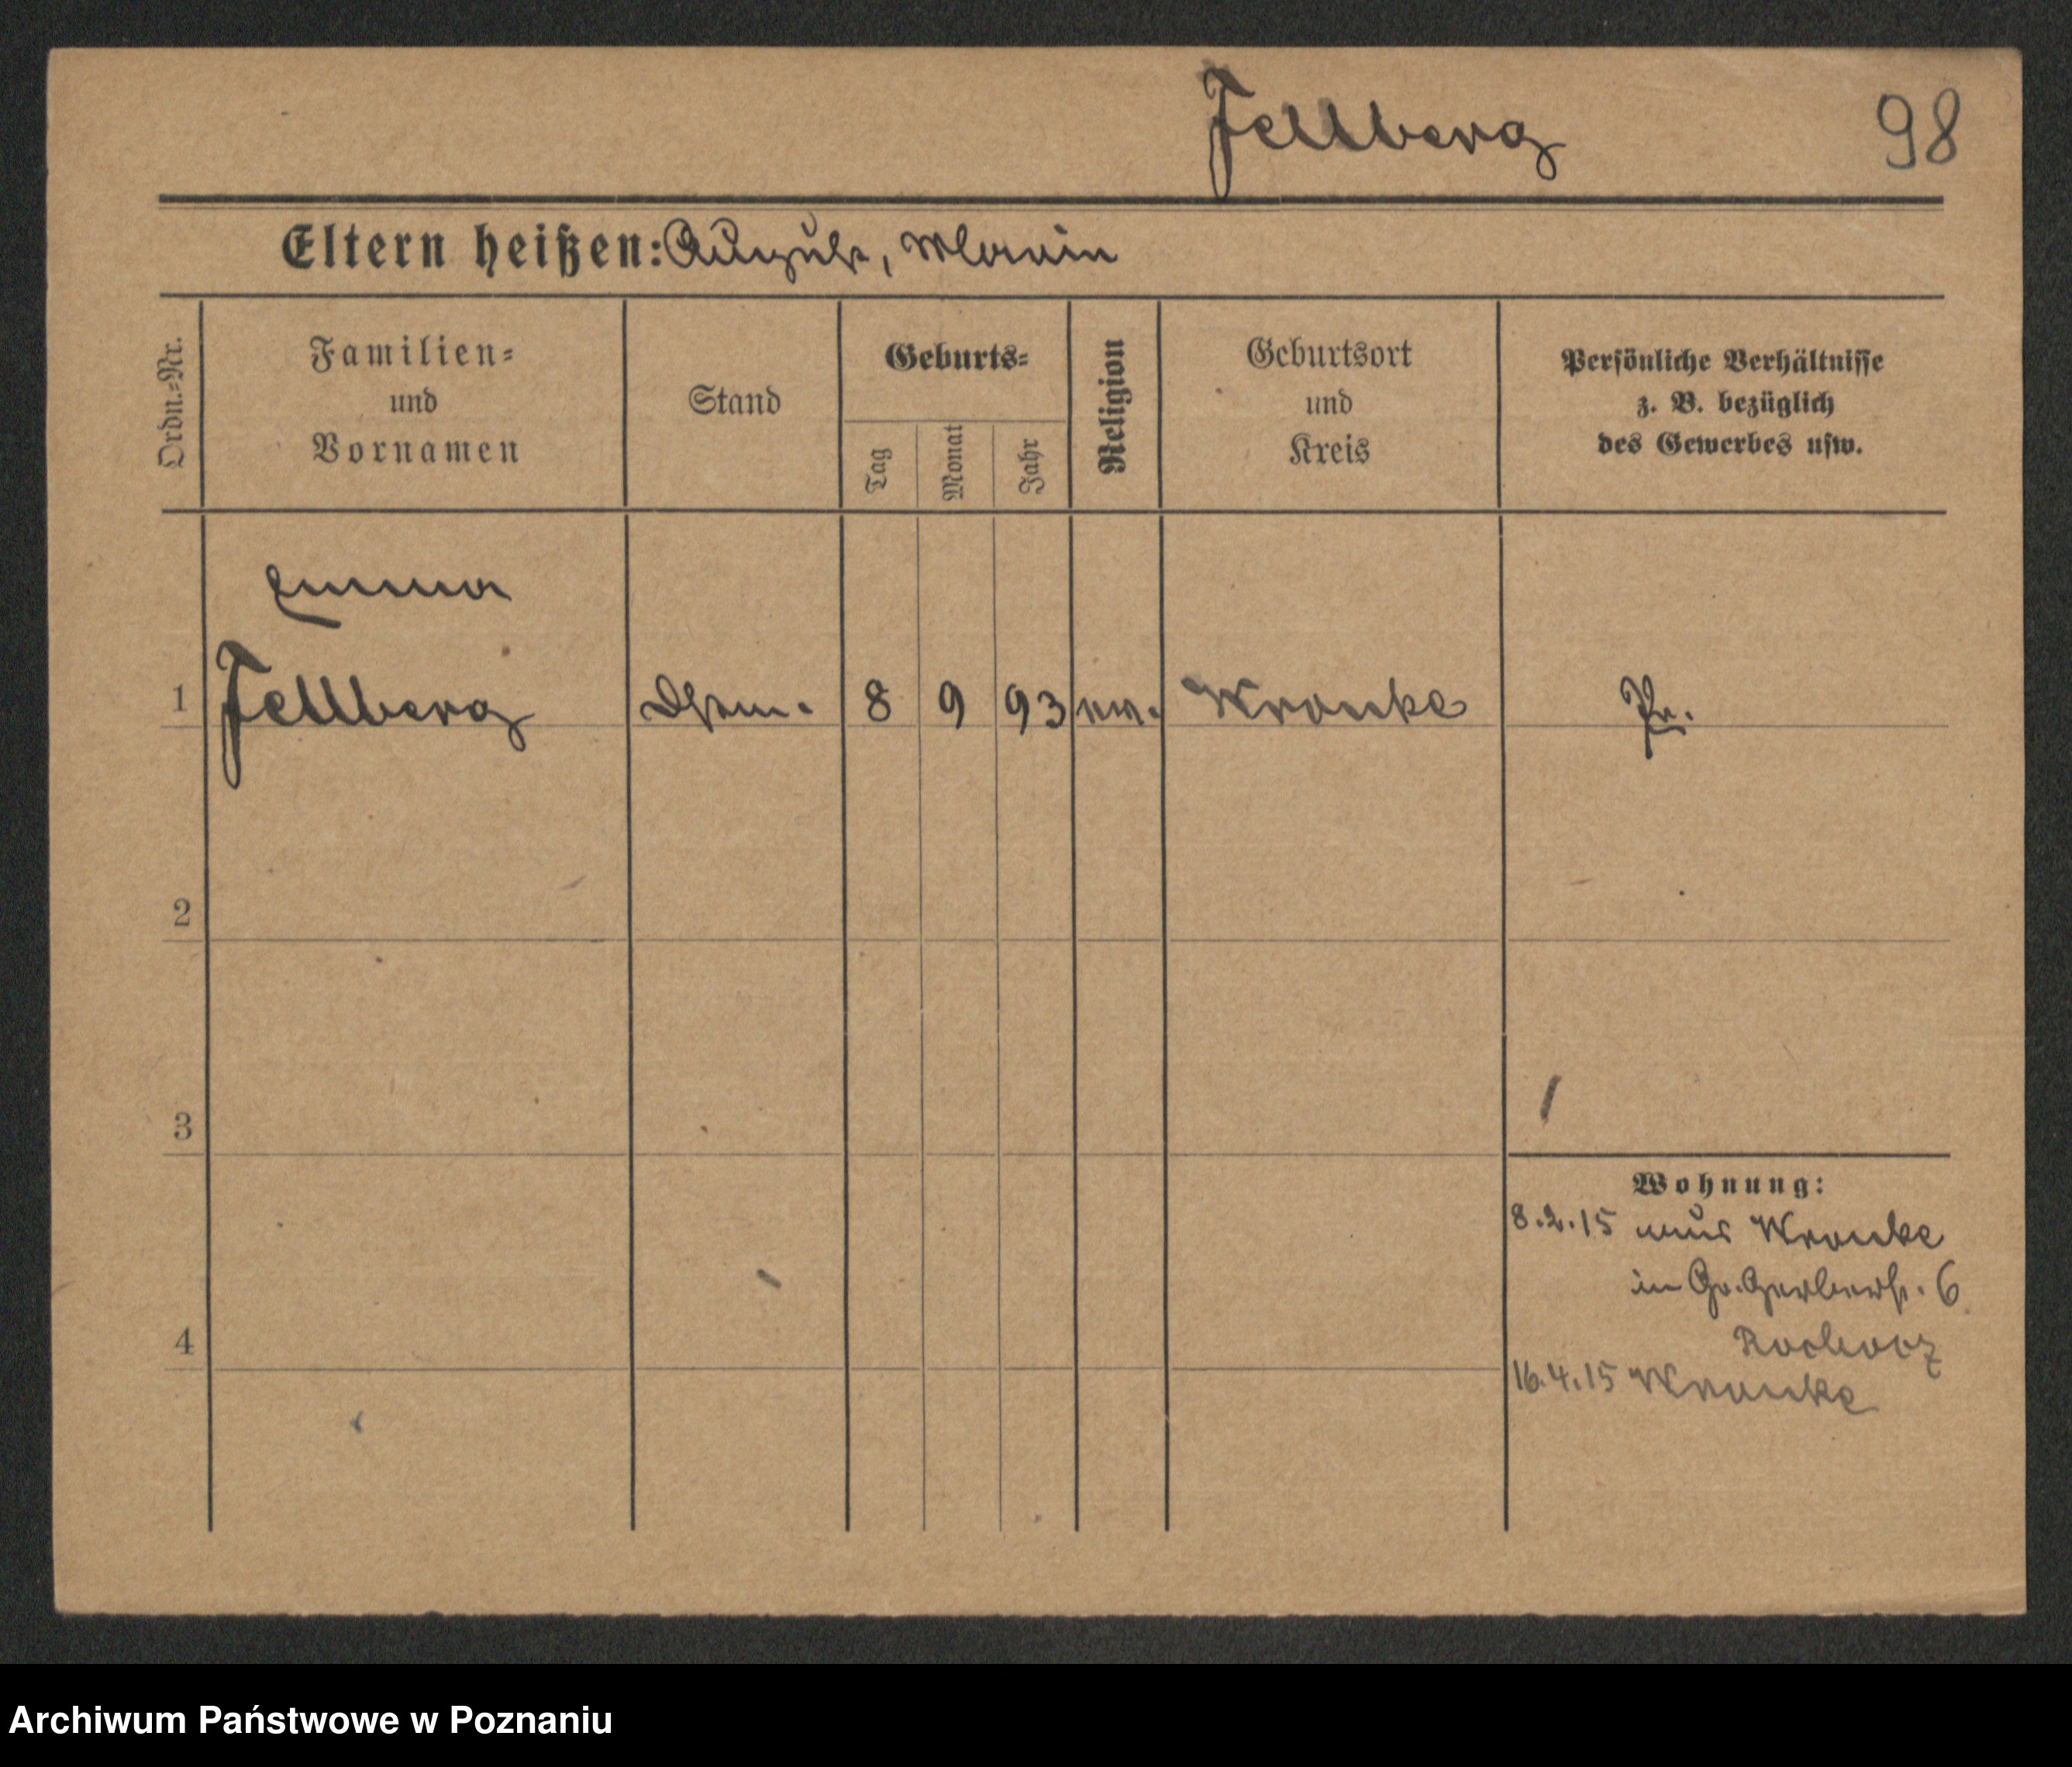 Fellberg 98
Eltern heißen: August, Maria
Ordn.=Nr.
Familien=
und
Vornamen
Stand
Geburts=
Tag
Monat
Jahr
Religion
Geburtsort
und
Kreis
Persönliche Verhältnisse
z. B. bezüglich
des Gewerbes usw.
Emma
1 Fellberg 8 9 93 ev. Wronke Pr.
2
3
Wohnung:
8.2.15 aus Wronke
in Gr. Gerberst. 6
4
16.4.15 Wronke
Archiwum Państwowe w Poznaniu